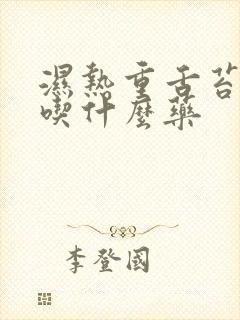 濕熱重舌苔
喫什麼藥
李登國